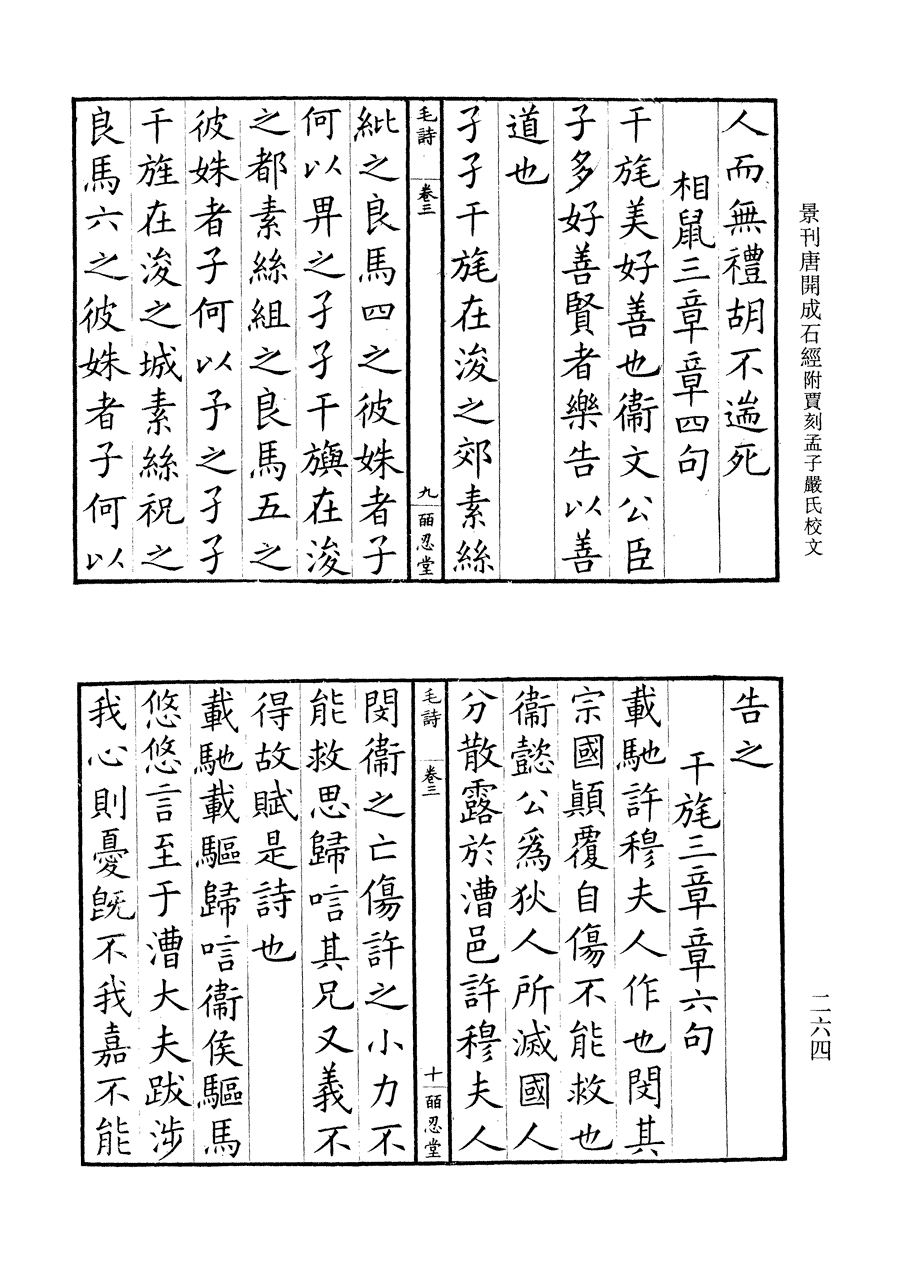 景刊唐開成石經附賈刻孟子嚴氏校文
人而無禮胡不遄死
相鼠三章章四句
干旄美好善也衞文公臣
子多好善賢者樂告以善
道也
孑孑干旄在浚之郊素絲
毛詩 卷三 九 皕忍堂
紕之良馬四之彼姝者子
何以畀之孑孑干旟在浚
之都素絲組之良馬五之
彼姝者子何以予之孑孑
干旌在浚之城素絲祝之
良馬六之彼姝者子何以
二六四
告之
干旄三章章六句
載馳許穆夫人作也閔其
宗國顚覆自傷不能救也
衞懿公爲狄人所滅國人
分散露於漕邑許穆夫人
毛詩 卷三 十 皕忍堂
閔衞之亡傷許之小力不
能救思歸唁其兄又義不
得故賦是詩也
載馳載驅歸唁衞侯驅馬
悠悠言至于漕大夫跋涉
我心則憂旣不我嘉不能